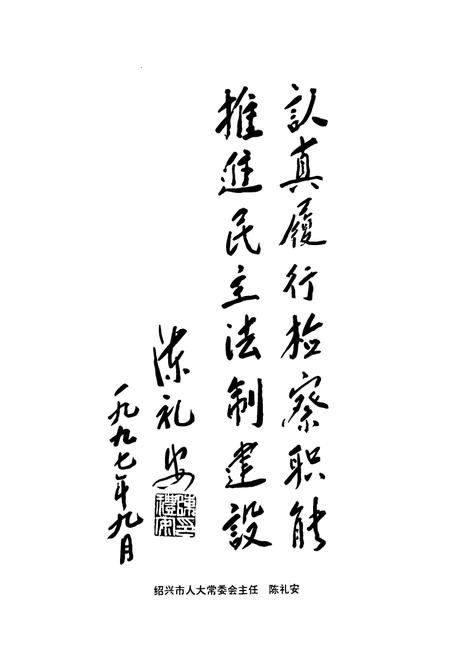 認真履行检察职能
推進民主法制建設
陈礼安
一九九七年九月
陳禮安印
绍兴市人大常委会主任 陈礼安